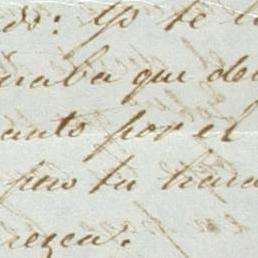 do: Yo te
raba que de
anto por el
pero tu
rezca.